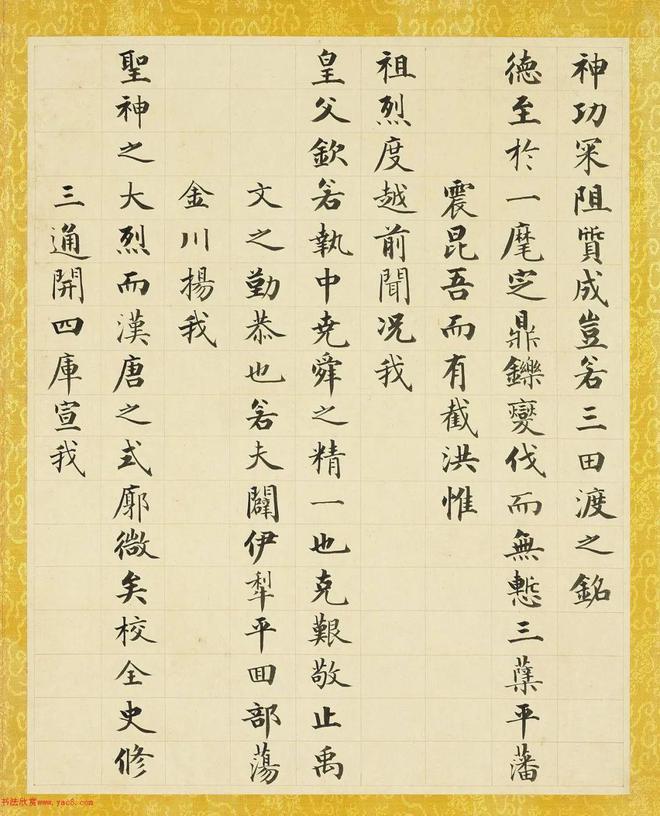 神功罙阻質成豈若三田渡之銘
德至於一麾定鼎鑠燮伐而無慙三蘖平藩
震昆吾而有截洪惟
祖烈度越前聞况我
皇父欽若執中堯舜之精一也克艱敬止禹
文之勤恭也若夫闢伊犁平回部蕩
金川揚我
聖神之大烈而漢唐之式廓微矣校全史修
三通開四庫宣我
书法欣赏www.yac8.com